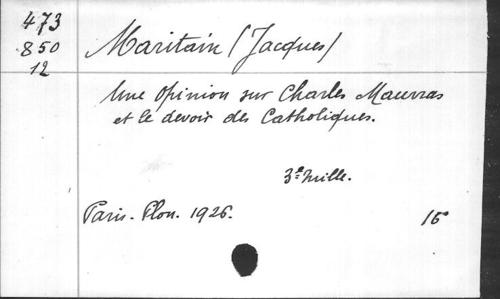 473
850
12
Maritain (Jacques)
Une opinion sur Charles Maurras
et le devoir des Catholiques.
3e mille.
Paris. Plon. 1926.
16°